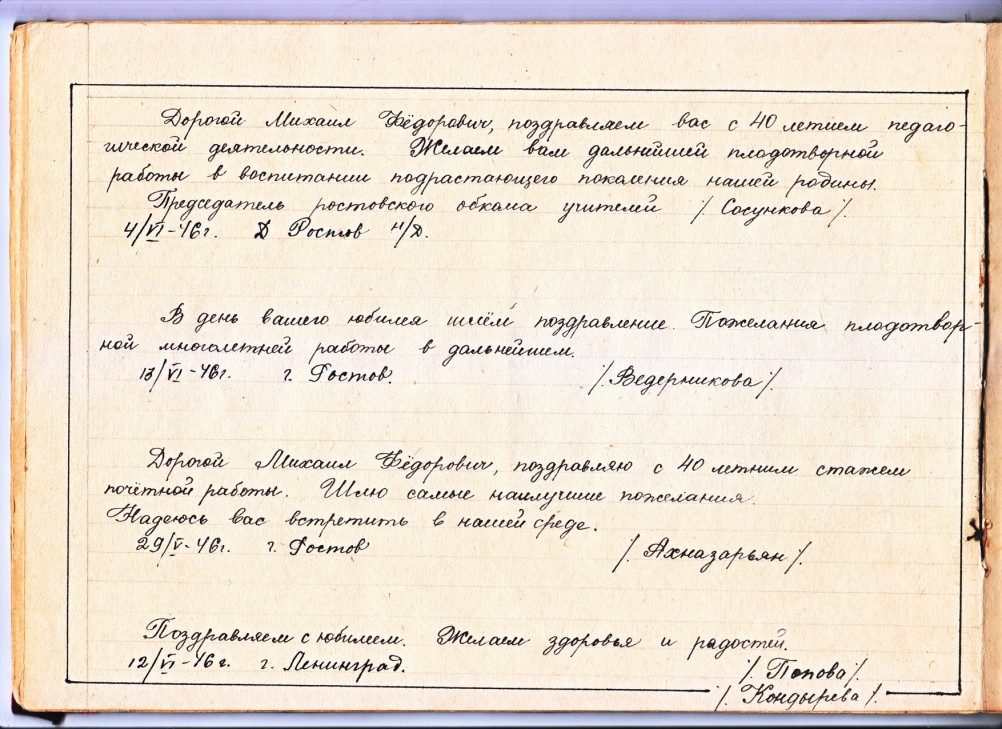 Дорогой Михаил Фёдорович, поздравляем вас с 40 летием педаго-
гической деятельности. Желаем вам дальнейшей плодотворной
работы в воспитании подрастающего поколения нашей родины.
Председатель ростовского обкома учителей /. Сосункова /.
4/VI-46г. Д Ростов н/Д.
В день вашего юбилея шлём поздравление. Пожелания плодотвор-
ной многолетней работы в дальнейшем.
13/VI-46г. г. Ростов. /. Ведерникова /.
Дорогой Михаил Фёдорович, поздравляю с 40 летним стажем
почётной работы. Шлю самые наилучшие пожелания.
Надеюсь вас встретить в нашей среде.
29/V-46г. г. Ростов /. Ахназарьян /.
Поздравляем с юбилеем. Желаем здоровья и радостей.
12/VI-46г. г. Ленинград. /. Попова /.
/. Кондырева /.